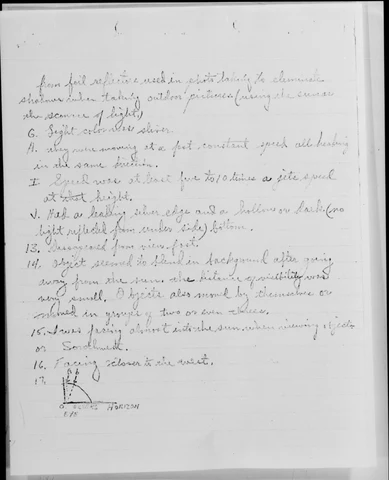 from foil reflectors used in photo taking to eleminate
shadows when taking outdoor pictures (using the sun as
the source of light.)
G. Light color was silver.
H. They were moving at a fast constant speed all heading
in the same direction.
I. Speed was at least five to 10 times a jets speed
at that height.
J. Had a leading silver edge and a hollow or dark (no
light reflected from under side) bottom.
13. Disappeared from view fast.
14. Object seemed to blend in background after going
away from the sun. The distance of visibility was
very small. Objects also moved by themselves or
moved in groups of two or even threes.
15. I was facing almost into the sun when viewing objects
or Southwest.
16. Facing closer to the west.
17.
HORIZON